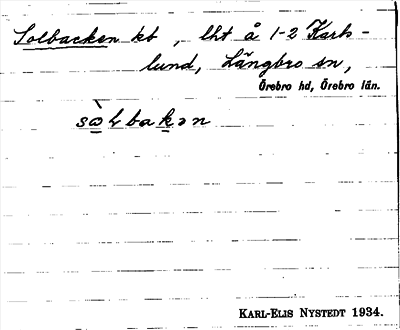 Solbacken kb, lht å 1-2 Karls-
lund, Längbro sn,
Örebro hd, Örebro län.
sὼɫbakən
KARL-ELIS NYSTEDT 1934.